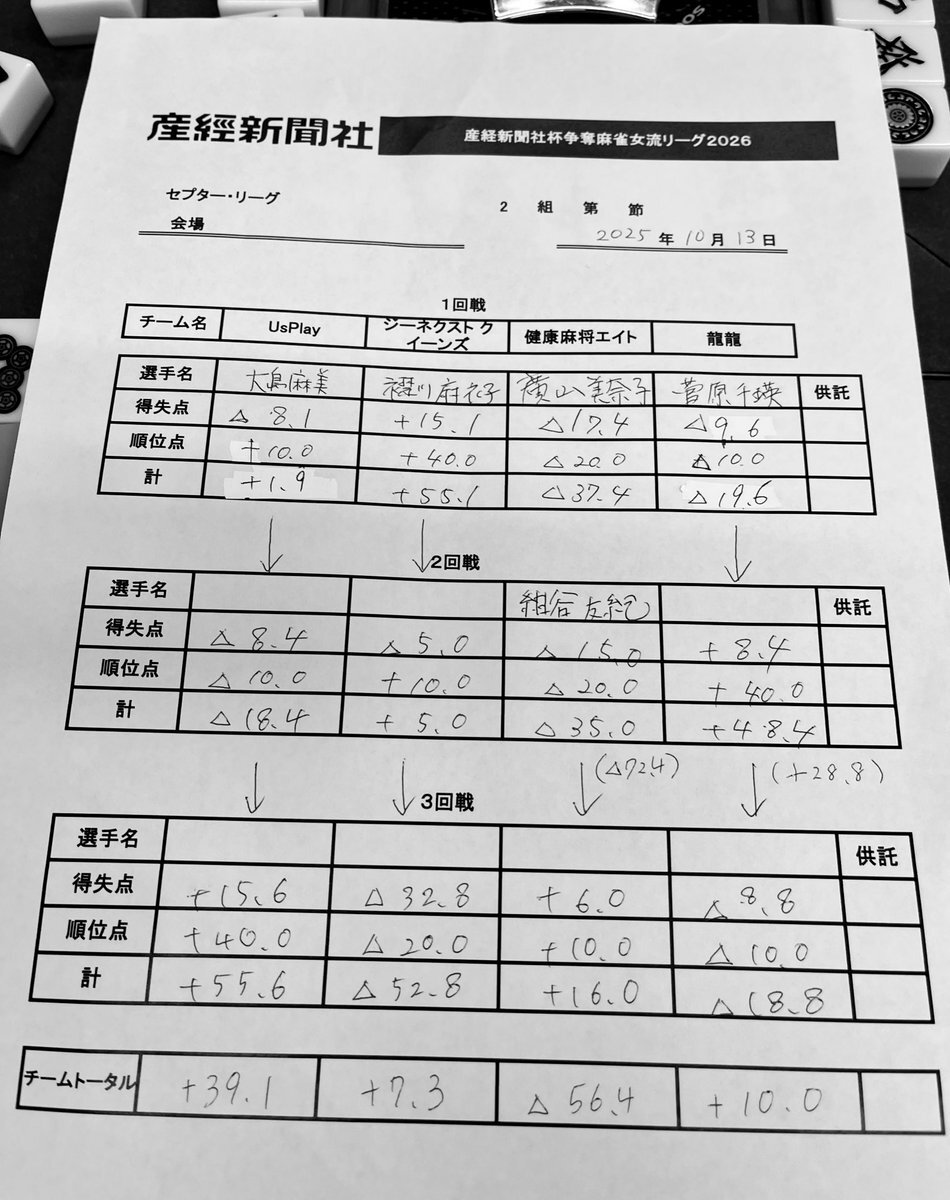 産經新聞社 産経新聞社杯争奪麻雀女流リーグ2026
セプター・リーグ
2 組 第 節
会場
2025 年 10 月 13 日
1回戦
チーム名 UsPlay ジーネクスト クイーンズ 健康麻将エイト 龍龍
選手名 大島麻美 襟川麻衣子 横山美奈子 菅原千瑛 供託
得失点 △8.1 +15.1 △17.4 △9.6
順位点 +10.0 +40.0 △20.0 △10.0
計 +1.9 +55.1 △37.4 △19.6
2回戦
選手名 紺谷友紀 供託
得失点 △8.4 △5.0 △15.0 +8.4
順位点 △10.0 +10.0 △20.0 +40.0
計 △18.4 +5.0 △35.0 +48.4
(△72.4) (+28.8)
3回戦
選手名 供託
得失点 +15.6 △32.8 +6.0 △8.8
順位点 +40.0 △20.0 +10.0 △10.0
計 +55.6 △52.8 +16.0 △18.8
チームトータル +39.1 +7.3 △56.4 +10.0